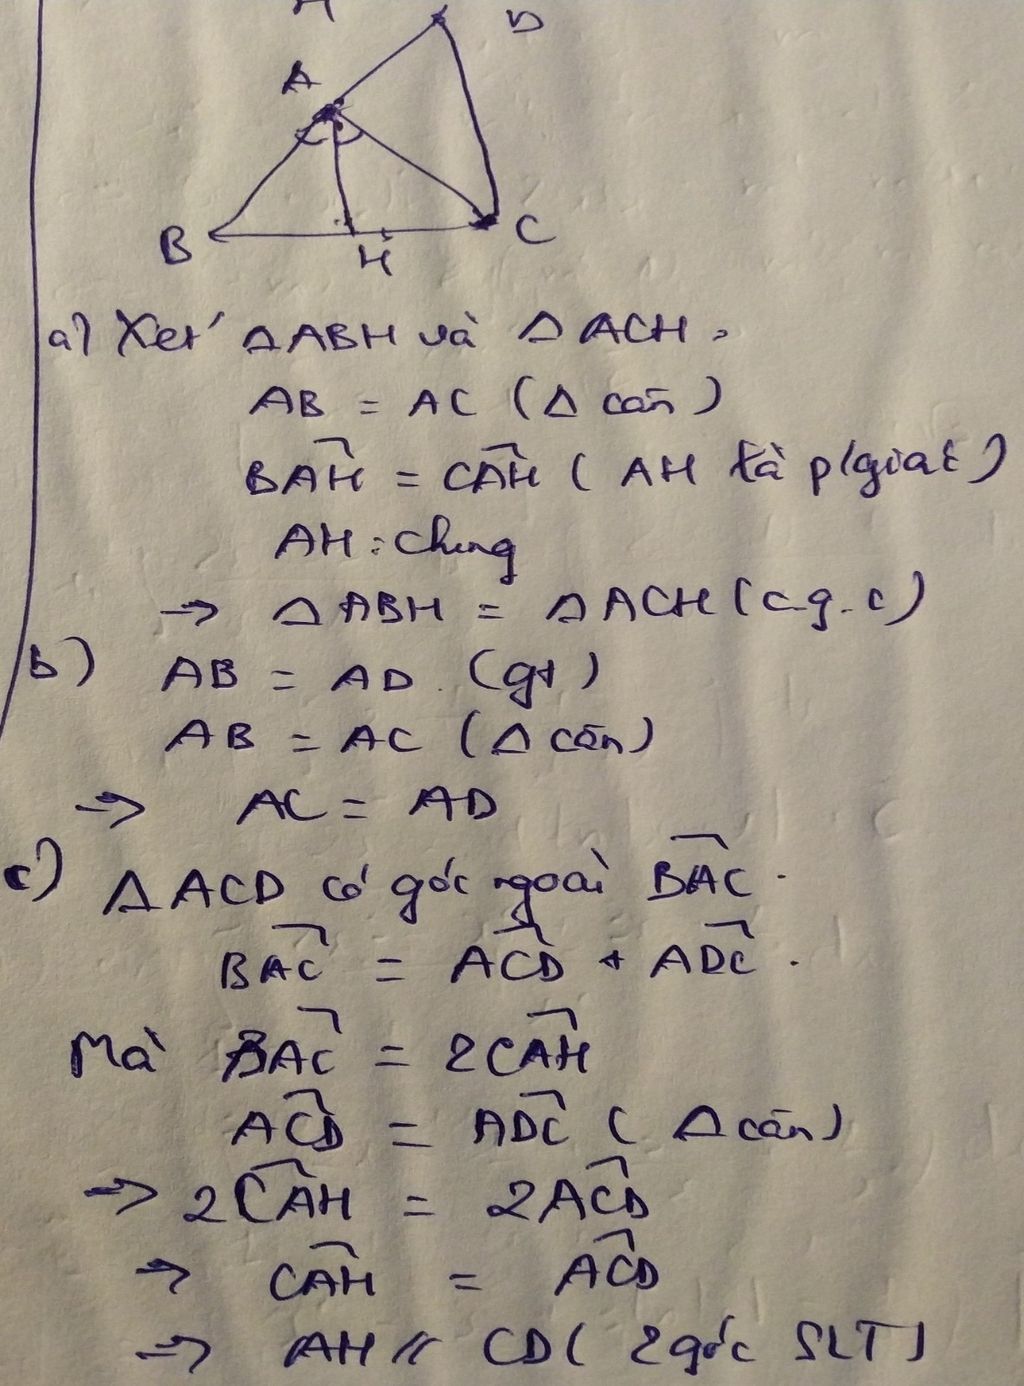 A D
B H C
a) Xét ΔABH và ΔACH.
AB = AC (Δ cân)
BAH = CAH ( AH là p/giác )
AH: chung
→ ΔABH = ΔACH (c.g.c)
b) AB = AD (gt)
AB = AC (Δ cân)
→ AC = AD
c) ΔACD có góc ngoài BAC.
BAC = ACD + ADC.
Mà BAC = 2CAH
ACD = ADC ( Δ cân)
→ 2CAH = 2ACD
→ CAH = ACD
→ AH // CD ( 2 góc SLT)